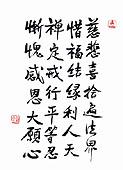 慈悲喜捨遍法界
惜福結緣利人天
禪定戒行平等忍
慚愧感恩大願心